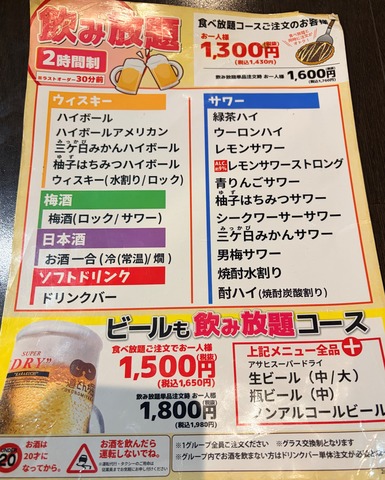 飲み放題
2時間制
※ラストオーダー30分前
食べ放題コースご注文のお客様
お一人様
1,300円(税抜)
(税込1,430円)
飲み放題単品注文時 お一人様 1,600円(税抜)
(税込1,760円)
ウィスキー
ハイボール
ハイボールアメリカン
三ケ日みかんハイボール
みっかび
柚子はちみつハイボール
ゆず
ウィスキー(水割り/ロック)
梅酒
梅酒(ロック/サワー)
日本酒
お酒 一合(冷(常温)/燗)
ソフトドリンク
ドリンクバー
サワー
緑茶ハイ
ウーロンハイ
レモンサワー
レモンサワーストロング
青りんごサワー
柚子はちみつサワー
ゆず
シークワーサーサワー
三ケ日みかんサワー
みっかび
男梅サワー
焼酎水割り
酎ハイ(焼酎炭酸割り)
ビールも飲み放題コース
食べ放題ご注文でお一人様
1,500円(税抜)
(税込1,650円)
飲み放題単品注文時 お一人様
1,800円(税抜)
(税込1,980円)
上記メニュー全品+
アサヒスーパードライ
生ビール(中/大)
瓶ビール(中)
ノンアルコールビール
SUPER
"DRY"
お酒は
20才に
なってから。
20
お酒を飲んだら
運転しないでね。
※1グループ全員ご注文ください ※グラス交換制となります
※グループ内でお酒を飲まない方はドリンクバー単体注文が必必要